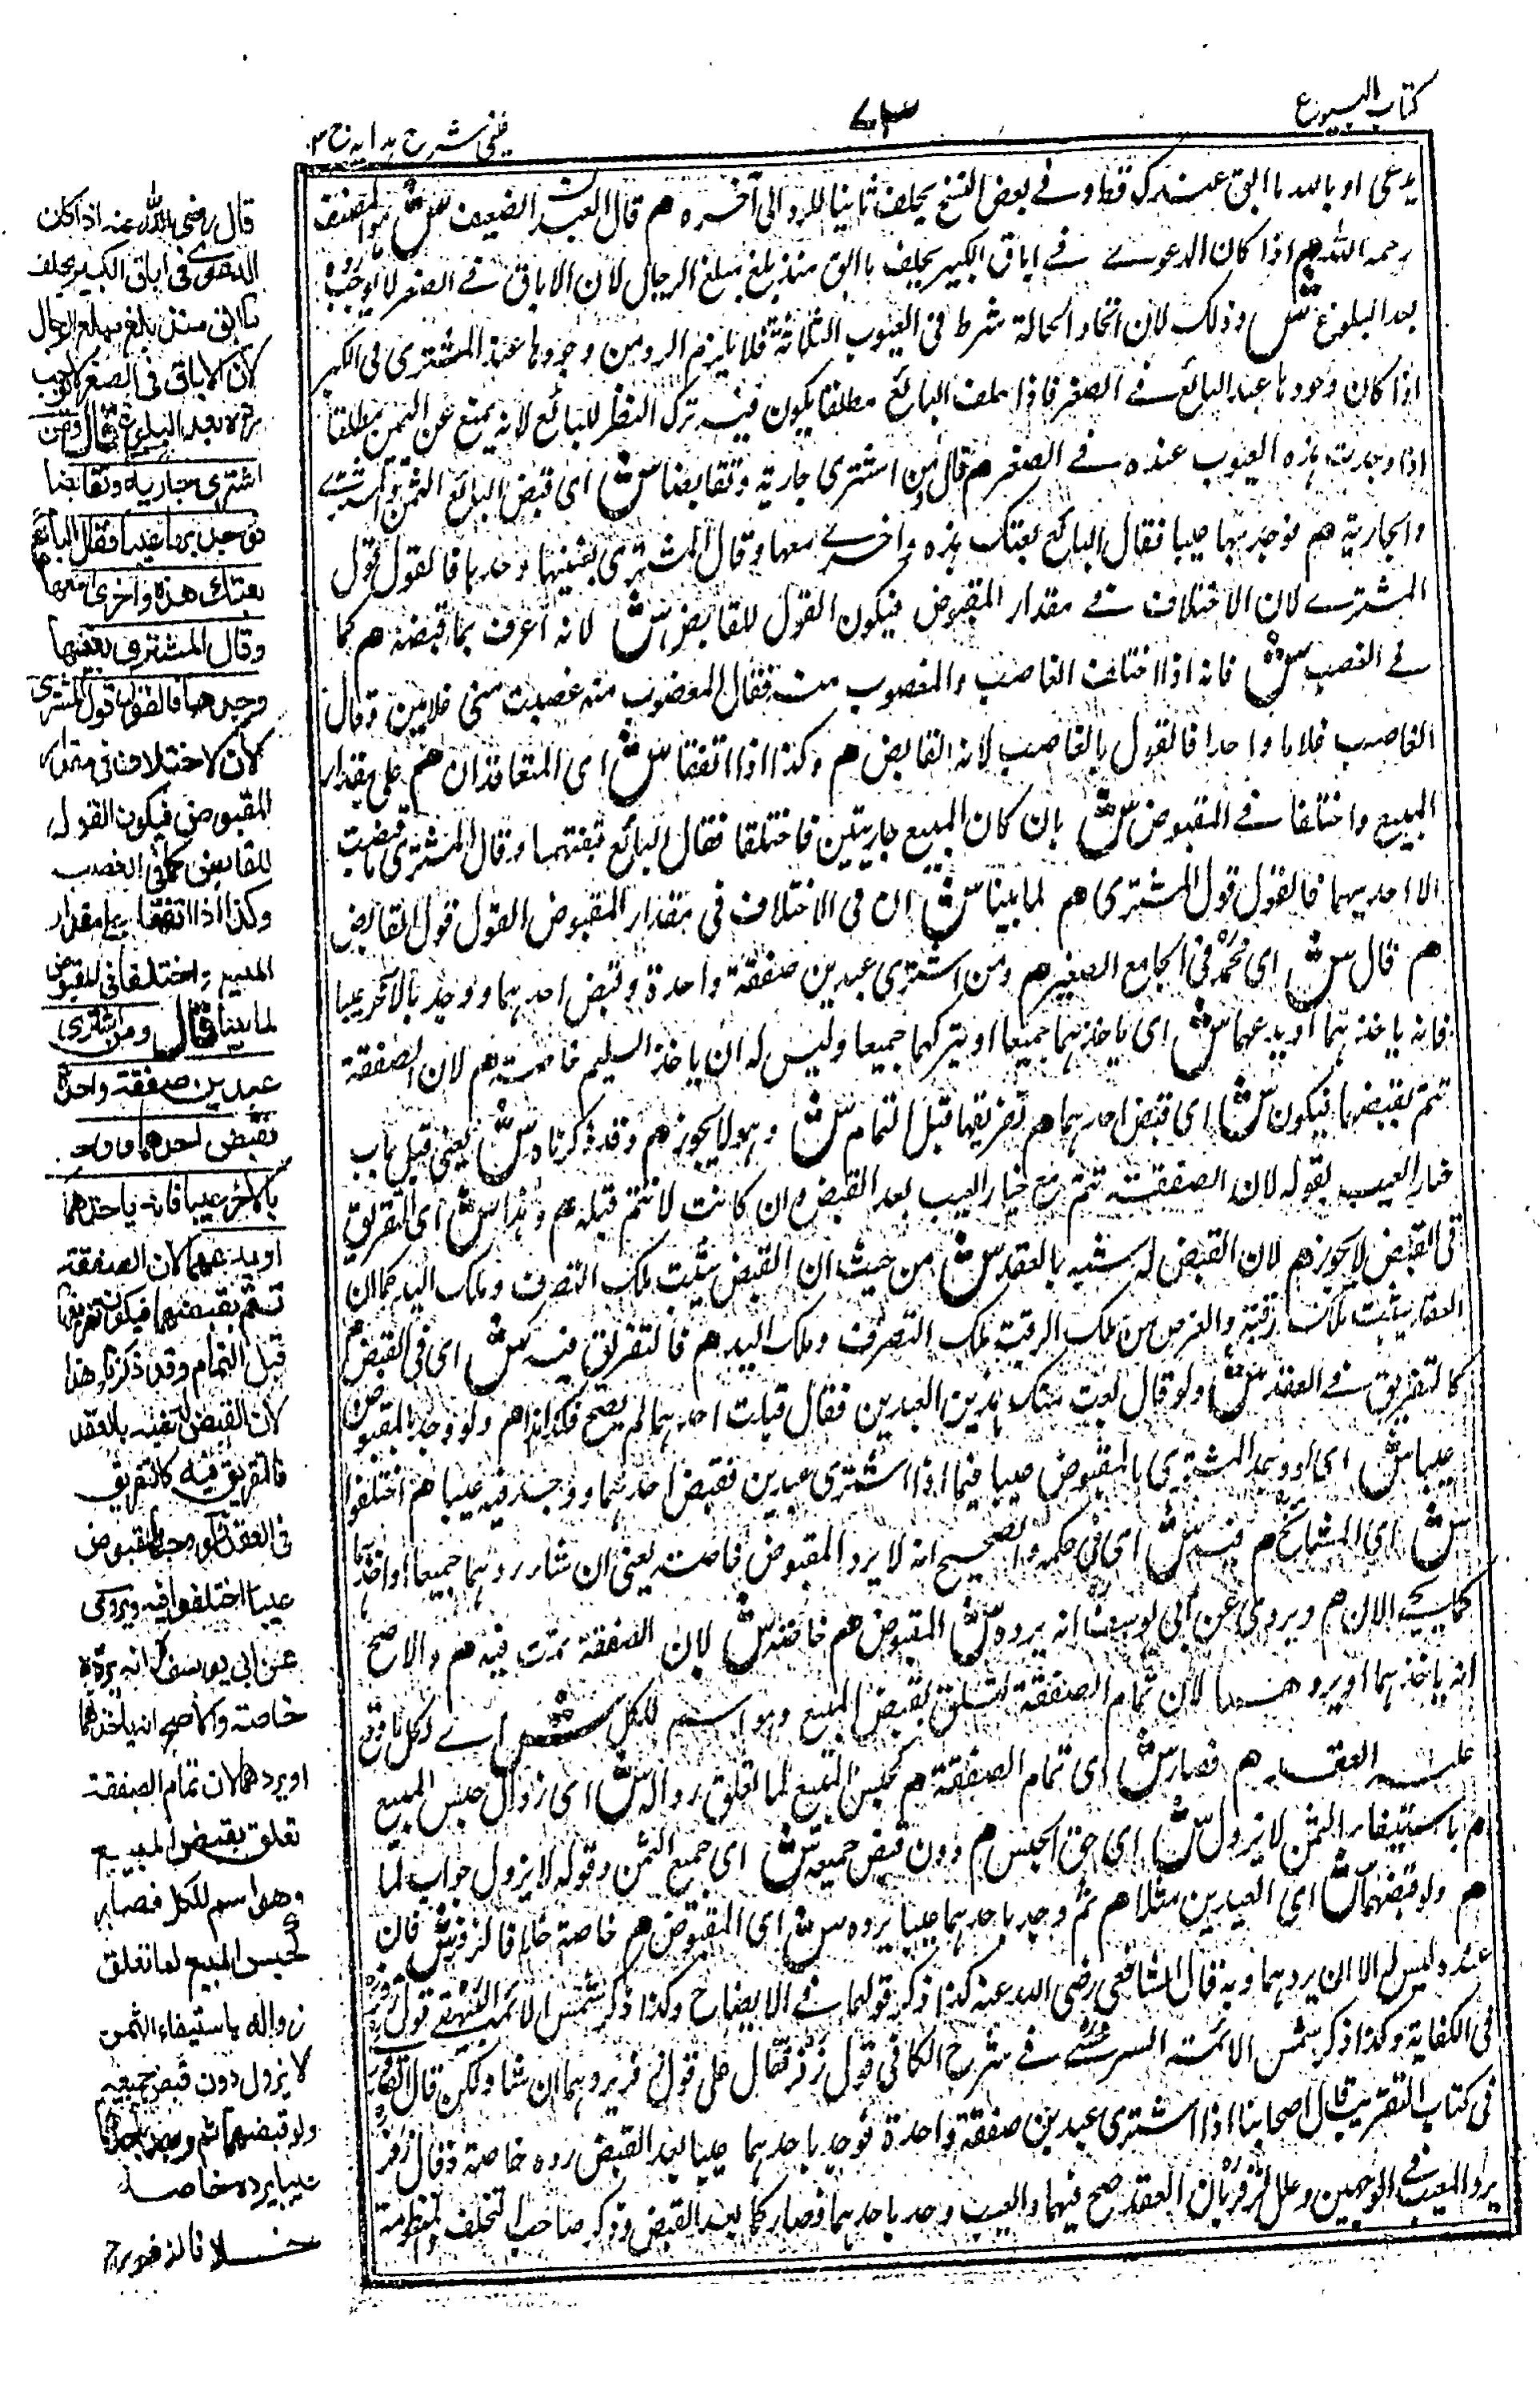 كتاب البيوع
٧٣
عینی شرح ہدایہ ج ٣
یدعی او باللہ ما ابق عندک قط وفے بعض النسخ یحلف ثانیا للرد الی آخرہ هم قال العبد الضعیف ش هو المصنف
رحمہ اللہ هم اذا کان الدعوے فے اباق الکبیر یحلف ما ابق منذ بلغ مبلغ الرجال لان الاباق فے الصغر لا یوجب ردہ
بعد البلوغ ش وذلک لان اتحاد الحالة شرط فی العیوب الثلاثة فلا یلزم الرد من وجودها عند المشتری فی الکبر
اذا کان وجودها عند البائع فے الصغر فاذا حلف البائع مطلقا یکون فیہ ترک النظر للبائع لانہ یمتنع عن الیمین مطلقا
اذا وجدت ہذہ العیوب عندہ فے الصغر هم قال ومن اشتری جاریة وتقابضا ش ای قبض البائع الثمن والمشترے
والجاریة هم فوجد بہا عیبا فقال البائع بعتک ہذہ واخرے معہا وقال المشتری بعتنیہا وحدہا فالقول قول
المشترے لان الاختلاف فے مقدار المقبوض فیکون القول للقابض ش لانہ اعرف بما قبضہ هم کما
فے الغصب ش فانہ اذا اختلف الغاصب والمغصوب منہ فقال المغصوب منہ غصبت منی غلامین وقال
الغاصب غلاما واحدا فالقول للغاصب لانہ القابض هم وکذا اذا اتفقا ش ای المتعاقدان هم علی مقدار
المبیع واختلفا فے المقبوض ش بان کان المبیع جاریتین فاختلفا فقال البائع قبضتہما وقال المشتری ما قبضت
الا احدیہما فالقول قول المشتری هم لما بینا ش ان فی الاختلاف فی مقدار المقبوض القول قول القابض
هم قال ش ای محمد فی الجامع الصغیر هم ومن اشتری عبدین صفقة واحدة وقبض احدہما ووجد بالآخر عیبا
فانہ یاخذہما او یدعہما ش ای یاخذہما جمیعا او یترکہما جمیعا ولیس لہ ان یاخذ السلیم خاصة هم لان الصفقة
تتم بقبضہما فیکون ش ای قبض احدہما هم تفریقہا قبل التمام ش وہو لا یجوز هم وقد ذکرناہ ش یعنی قبیل باب
خیار العیب بقولہ لان الصفقة تتم مع خیار العیب بعد القبض وان کانت لا تتم قبلہ هم وہذا ش ای التفریق
فی القبض لا یجوز هم لان القبض لہ شبہ بالعقد ش من حیث ان القبض یثبت ملک التصرف وملک الید کما ان
العقد یثبت ملک رقبتہ والغرض من ملک الرقبة ملک التصرف وملک الید هم فالتفریق فیہ ش ای فی القبض هم
کالتفریق فے العقد ش ولو قال بعت منک ہذین العبدین فقال قبلت احدہما لم یصح فکذا ہذا هم ولو وجد بالمقبوض
عیبا ش ای لو وجد المشتری بالمقبوض عیبا فیما اذا اشتری عبدین فقبض احدہما ووجد فیہ عیبا هم اختلفوا
ش ای المشائخ هم فیہ ش ای فی حکمہ والصحیح انہ لا یرد المقبوض خاصة یعنی ان شاء ردہما جمیعا او اخذہما
کما یجیء الان هم ویروی عن ابی یوسف انہ یردہ ش المقبوض هم خاصة ش لان الصفقة تمت فیہ هم والاصح
انہ یاخذہما او یردہما لان تمام الصفقة یتعلق بقبض المبیع وہو اسم للکل ش اے لکل ما وقع
علیہ العقد هم فصار ش ای تمام الصفقة هم کحبس المبیع لما تعلق زوالہ ش ای زوال حبس المبیع
هم باستیفاء الثمن لا یزول ش ای حق الحبس هم دون قبض جمیعہ ش ای جمیع الثمن وقولہ لا یزول جواب لما
هم ولو قبضہما ش ای العبدین مثلا هم ثم وجد باحدہما عیبا یردہ ش ای المقبوض هم خاصة خلافا لزفر ش فان
عندہ لیس لہ الا ان یردہما وبہ قال الشافعی رضی اللہ عنہ کذا ذکر قولہما فے الایضاح وکذا ذکر شمس الائمة البیہقے قول زفر
فی الکفایة وکذا ذکر شمس الائمة السرخسے فے شرح الکافی قول زفر فقال علی قول زفر یردہما ان شاء ولکن قال
فی کتاب التقریب قال اصحابنا اذا اشتری عبدین صفقة واحدة فوجد باحدہما عیبا بعد القبض ردہ خاصة وقال زفر
یرد المعیب فے الوجہین وعلل لزفر بان العقد صح فیہما والعیب وجد باحدہما فصار کما بعد القبض وذکر صاحب المختلف والمنظومة
قال رضی الله عنه اذا كان
الدعوى فی اباق الكبير يحلف
ما ابق منذ بلغ مبلغ الرجال
لان الاباق فی الصغر لا يوجب
رده بعد البلوغ قال ومن
اشترى جارية وتقابضا
فوجد بها عيبا فقال البائع
بعتك هذه واخرى معها
وقال المشترى بعتنيها
وحدها فالقول قول المشترى
لان الاختلاف فی مقدار
المقبوض فيكون القول
للقابض كما فی الغصب
وكذا اذا اتفقا على مقدار
المبيع واختلفا فی المقبوض
لما بينا قال ومن اشترى
عبدين صفقة واحدة
فقبض احدهما ووجد
بالآخر عيبا فانه ياخذهما
او يدعهما لان الصفقة
تتم بقبضهما فيكون تفريقها
قبل التمام وقد ذكرناه وهذا
لان القبض له شبه بالعقد
فالتفريق فيه كالتفريق
فی العقد ولو وجد بالمقبوض
عيبا اختلفوا فيه ويروى
عن ابی يوسف انه يرده
خاصة والاصح انه ياخذهما
او يردهما لان تمام الصفقة
تعلق بقبض المبيع
وهو اسم للكل فصار
كحبس المبيع لما تعلق
زواله باستيفاء الثمن
لا يزول دون قبض جميعه
ولو قبضهما ثم وجد باحدهما
عيبا يرده خاصة
خلافا لزفر